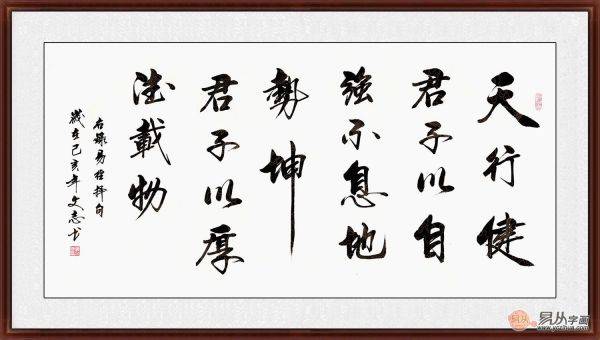 天行健
君子以自
強不息地
勢坤
君子以厚
德載物
右錄易經擇句
歲在己亥年文志书
易从字画
www.yczihua.com